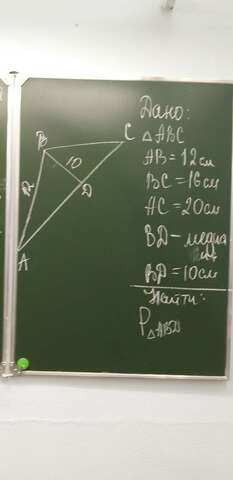 Дано:
△ABC
AB = 12 см
BC = 16 см
AC = 20 см
BD – медиа
BD = 10 см
Найти:
P△ABD
B
C
10
D
12
A